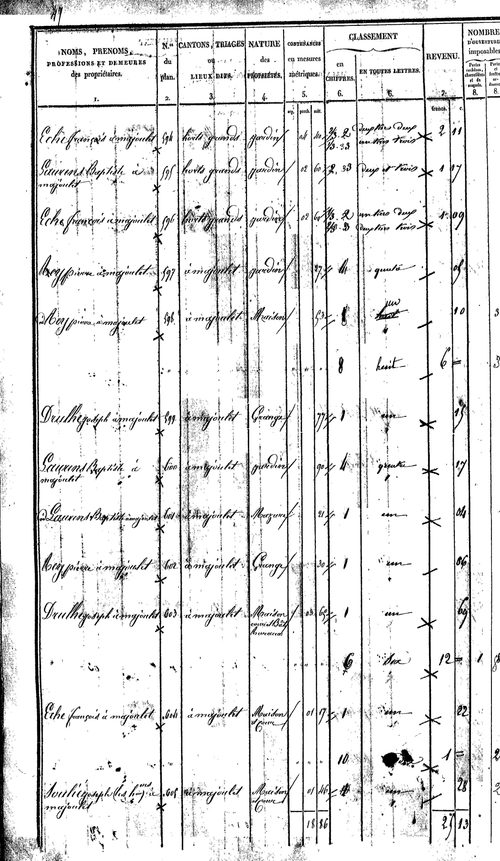 47
NOMS, PRÉNOMS, PROFESSIONS ET DEMEURES des propriétaires. | N.os du plan. | CANTONS, TRIAGES ou LIEUX-DITS. | NATURE des PROPRIÉTÉS. | CONTENANCES en mesures métriques. | CLASSEMENT en CHIFFRES. | EN TOUTES LETTRES. | REVENU. | NOMBRE D'OUVERTURES imposables
1. 2. 3. 4. 5. 6. 6. 7. 8. 8.
arp. perch. mèt. francs. c.
Eche françois à majoulet 594 horts grands jardin 2 11
Laurens Baptiste à majoulet 595 horts grands jardin 02 60 2. 33 deux et trois 1 17
Eche françois à majoulet 596 horts grands jardin 1 09
Rey pierre à majoulet 597 à majoulet jardin 27 4 quatre 05
d Rey pierre à majoulet 598 à majoulet Maison 53 1 un 10 3
8 huit 6 = 3
Drulhe joseph à majoulet 599 à majoulet Grange 77 1 un 15
Laurens Baptiste à majoulet 600 à majoulet jardin 90 4 quatre 17
d Laurens Baptiste à majoulet 601 à majoulet Mazure 21 1 un 04
Rey pierre à majoulet 602 à majoulet Grange 30 1 un 06
Drulhe joseph à majoulet 603 à majoulet Maison 03 1 un 69
6 six 12 = 1 8
Eche françois à majoulet 604 à majoulet Maison et Cour 01 17 1 un 22
10 1 = 2
Soulié joseph à majoulet 605 à majoulet Maison et Cour 01 46 un 28 2
18 86 25 13